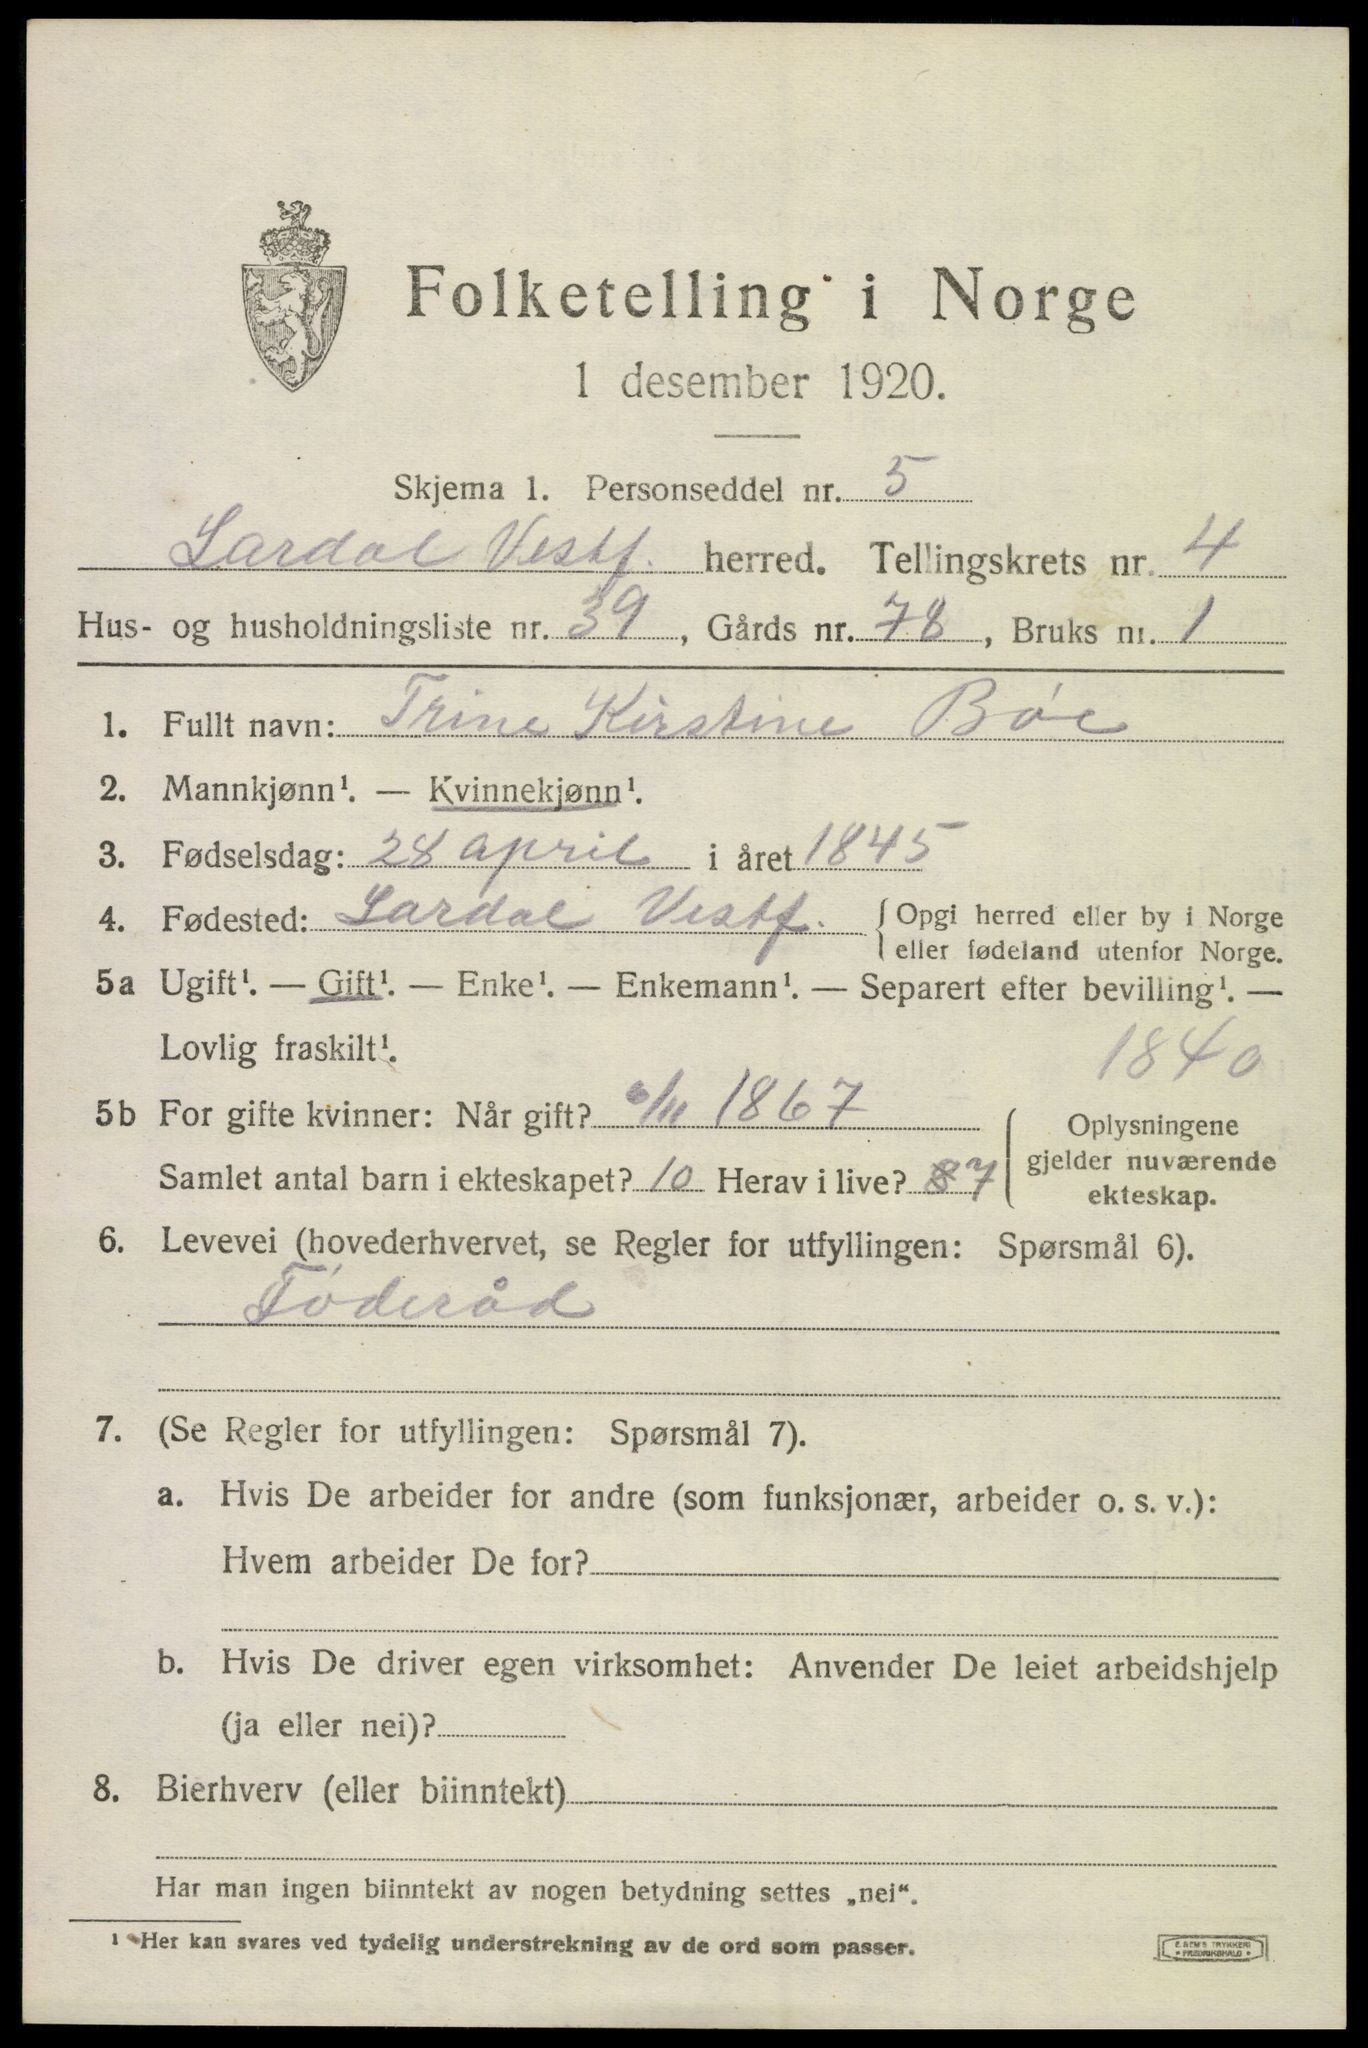 Folketelling i Norge
1 desember 1920.
Skjema 1. Personseddel nr. 5
Lardal Vestf. herred. Tellingskrets nr. 4
Hus- og husholdningsliste nr. 39, Gårds nr. 78, Bruks nr. 1
1. Fullt navn: Trine Kirstine Bøe
2. Mannkjønn¹. — Kvinnekjønn¹.
3. Fødselsdag: 28 april i året 1845
4. Fødested: Lardal Vestf. { Opgi herred eller by i Norge
eller fødeland utenfor Norge.
5a Ugift¹. — Gift¹. — Enke¹. — Enkemann¹. — Separert efter bevilling¹. —
Lovlig fraskilt¹. 1840
5b For gifte kvinner: Når gift? 6/11 1867
Samlet antal barn i ekteskapet? 10 Herav i live? 8 7
Oplysningene
gjelder nuværende
ekteskap.
6. Levevei (hovederhvervet, se Regler for utfyllingen: Spørsmål 6).
Føderåd
7. (Se Regler for utfyllingen: Spørsmål 7).
a. Hvis De arbeider for andre (som funksjonær, arbeider o. s. v.):
Hvem arbeider De for?
b. Hvis De driver egen virksomhet: Anvender De leiet arbeidshjelp
(ja eller nei)?
8. Bierhverv (eller biinntekt)
Har man ingen biinntekt av nogen betydning settes „nei“.
¹ Her kan svares ved tydelig understrekning av de ord som passer.
E. SEM'S TRYKKERI
• FREDRIKSHALD •